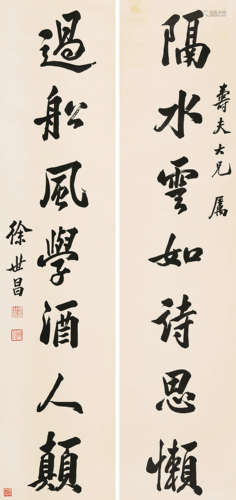 壽夫大兄屬
隔水雲如待思懶
過船風學酒人顛
徐世昌